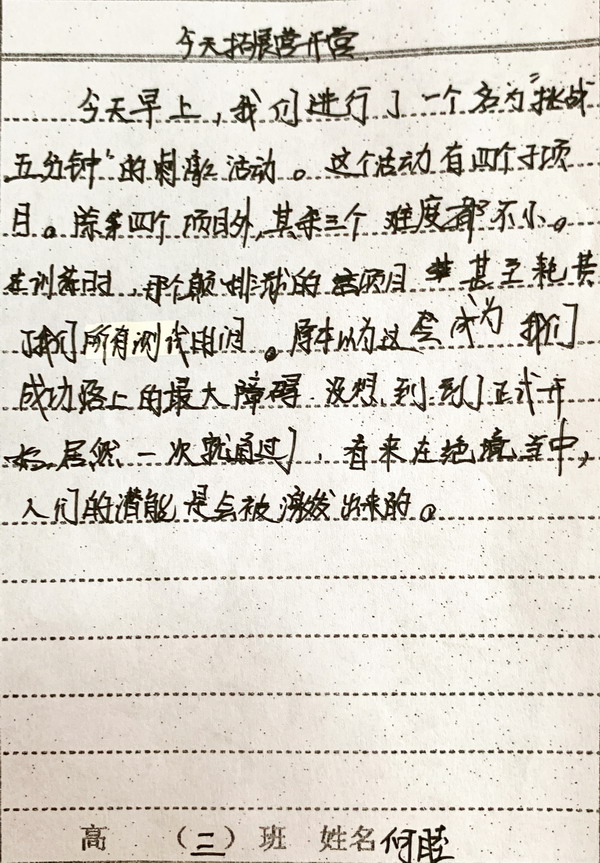 今天拓展营开营
今天早上，我们进行了一个名为"挑战
五分钟"的刺激活动。这个活动有四个子项
目。除第四个项目外，其余三个难度都不小。
在训练时，那个颠排球的项目甚至耗费
了我们所有测试时间。原本以为这会成为我们
成功路上的最大障碍 没想到到了正式开
始居然一次就通过了，看来在绝境当中，
人们的潜能是会被激发出来的。
高 （二）班 姓名 何睦